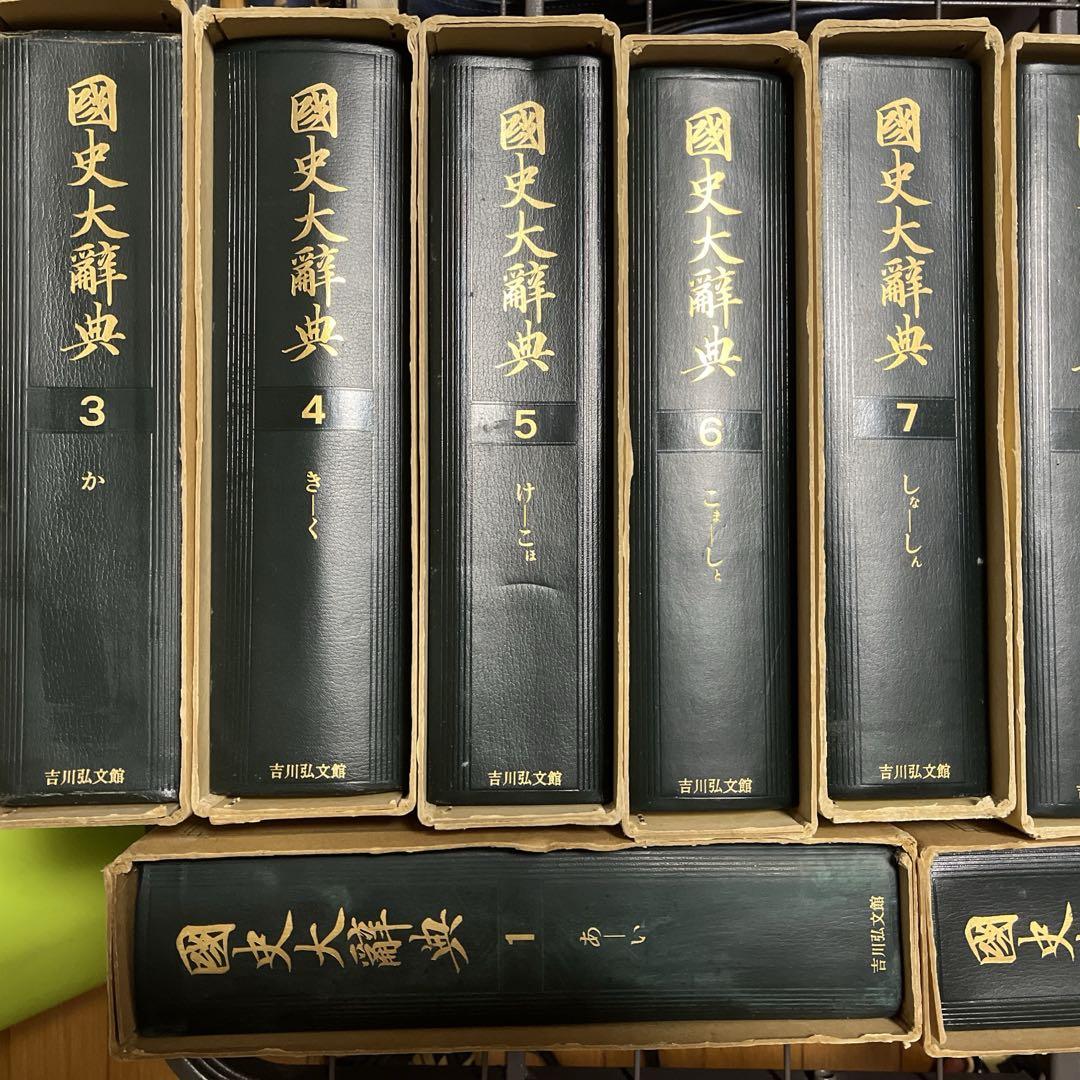 國史大辭典
3
か
吉川弘文館
國史大辭典
4
きーく
吉川弘文館
國史大辭典
5
けーこほ
吉川弘文館
國史大辭典
6
こまーしと
吉川弘文館
國史大辭典
7
しなーしん
吉川弘文館
國史大辭典
1
あーい
吉川弘文館
國史